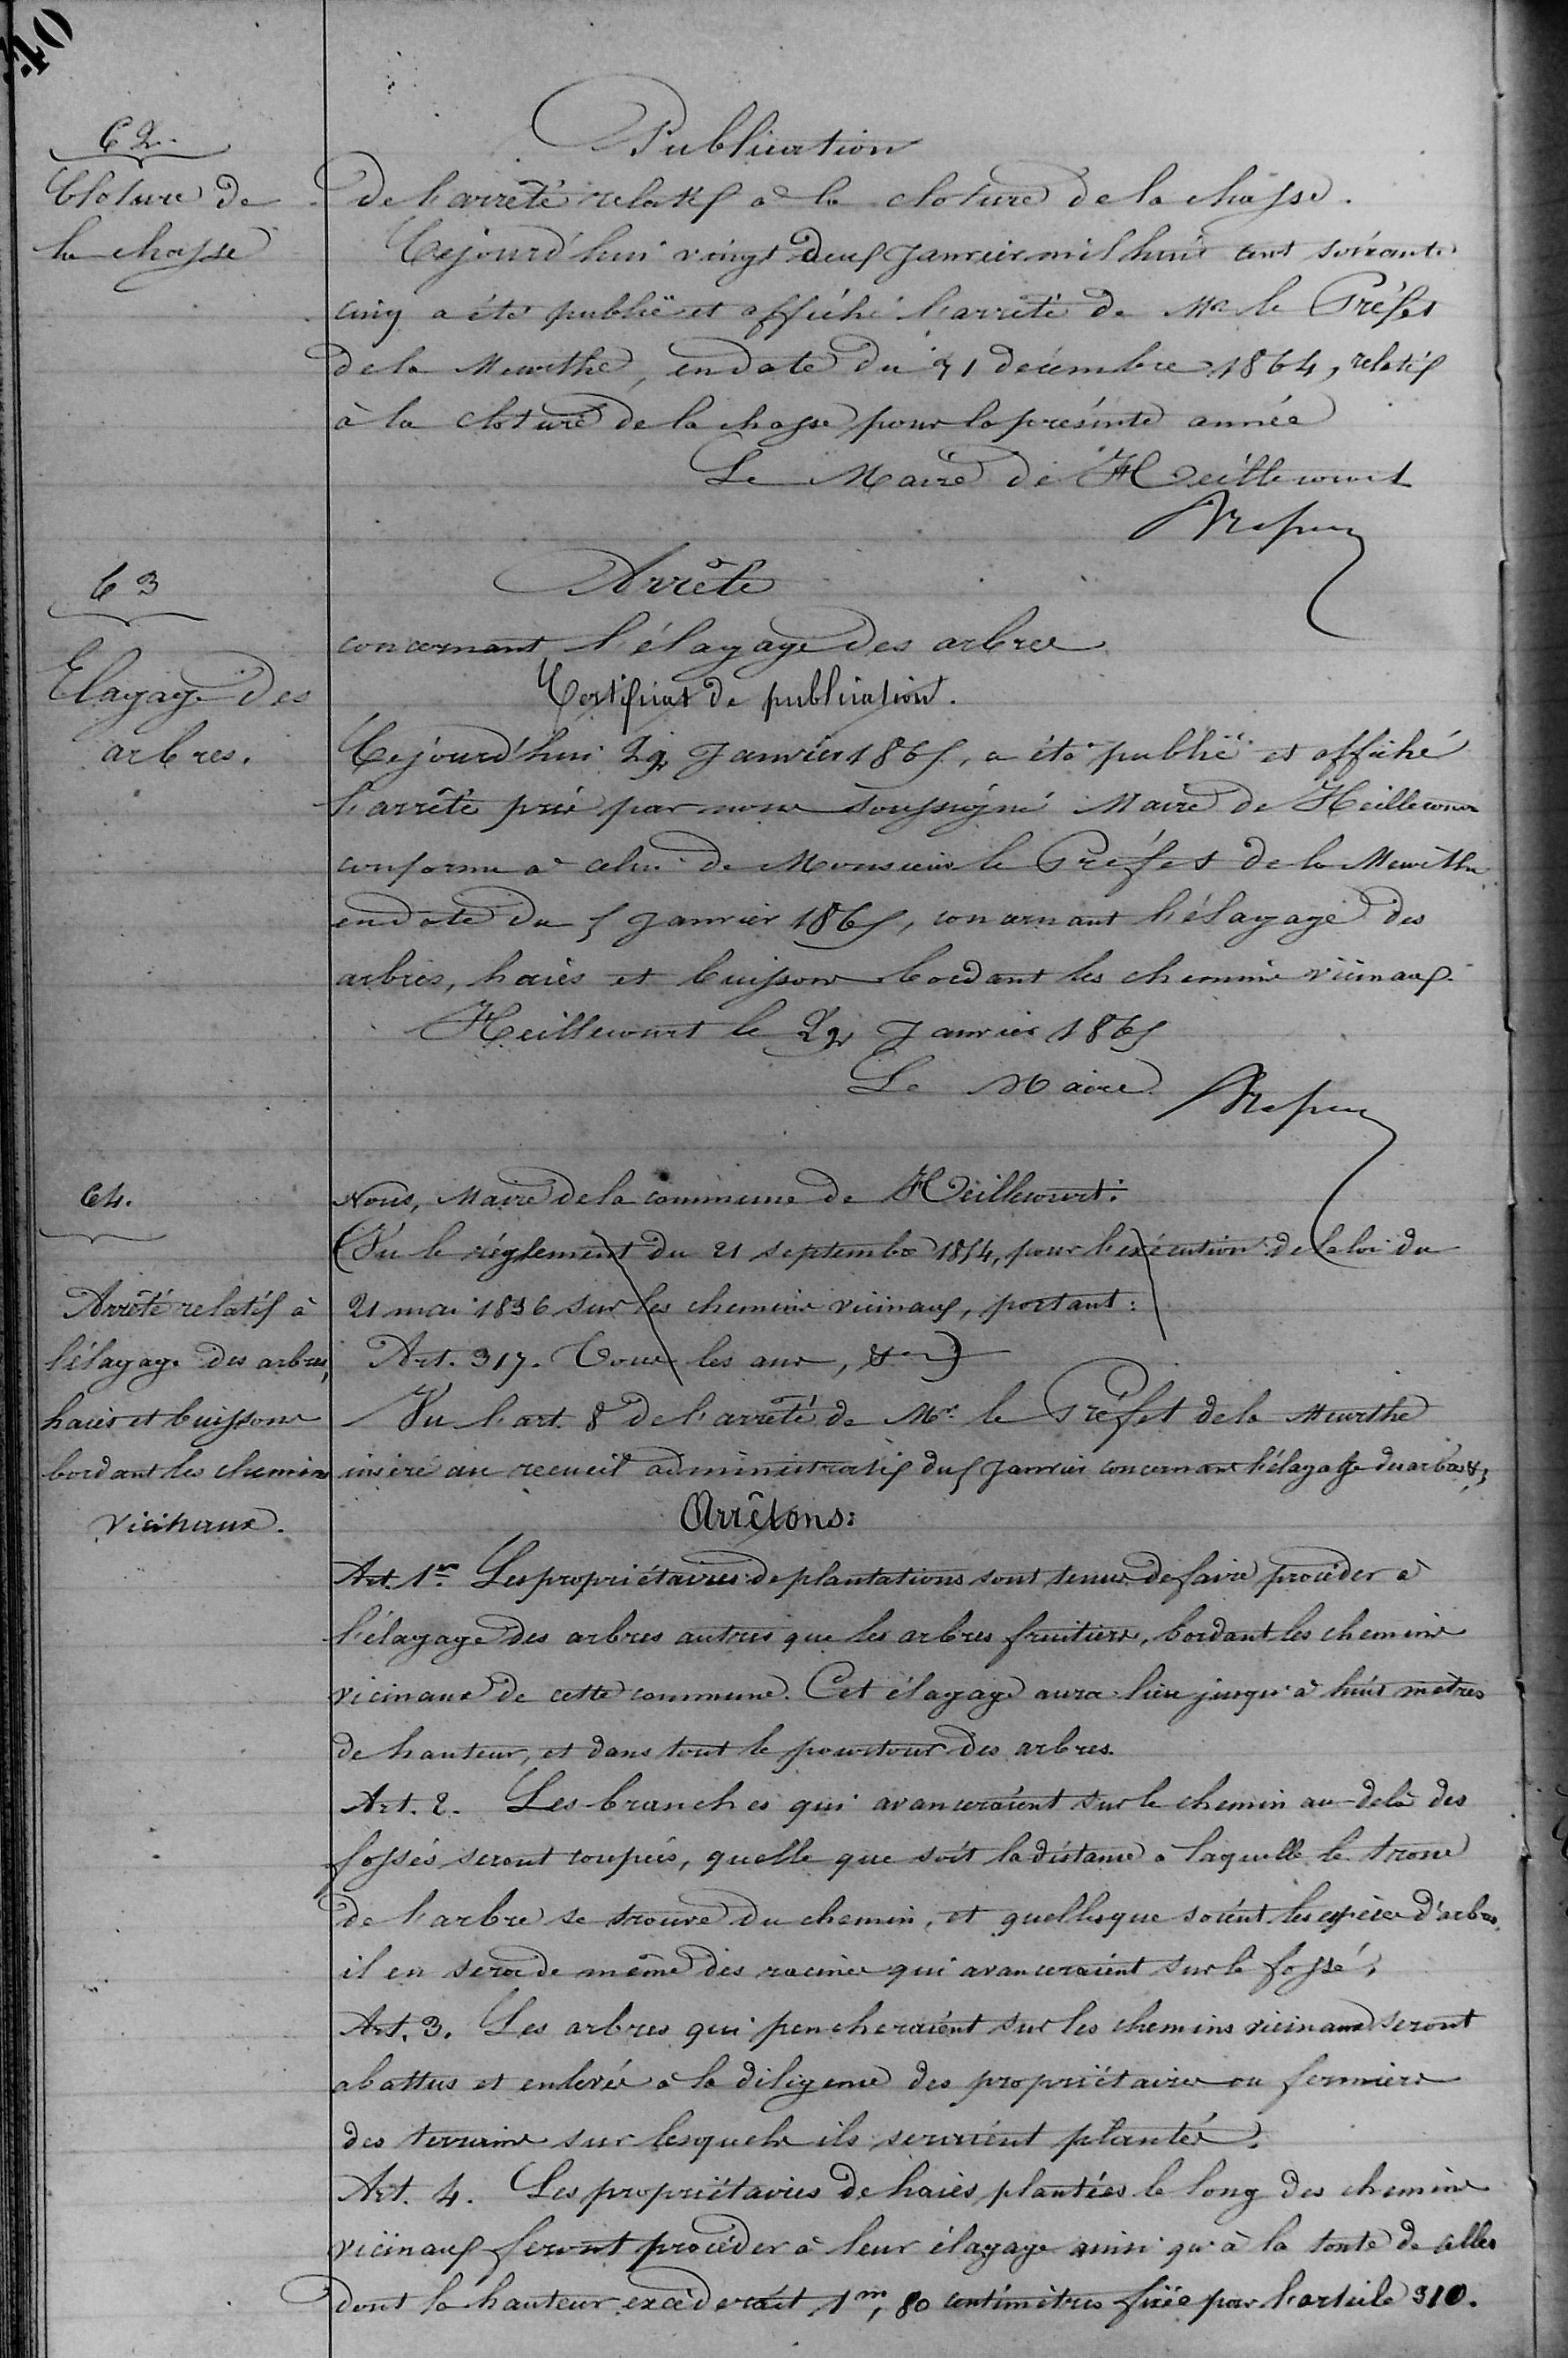 40
62.
Cloture de
la chasse
Publication
de l'arrêté relatif à la cloture de la chasse.
Cejourd'hui vingt deux Janvier mil huit cent soixante
cinq a été publié et affiché l'arrêté de Mr le Préfet
de la Meurthe, en date du 31 décembre 1864, relatif
à la cloture de la chasse pour la présente année
Le Maire de Heillecourt
63
Elagage des
arbres.
Arrêté
concernant l'élagage des arbres
Certificat de publication.
Cejourd'hui 22 Janvier 1865, a été publié et affiché
l'arrêté pris par nous soussigné Maire de Heillecourt
conforme à celui de Monsieur le Préfet de la Meurthe
en date du 5 Janvier 1865, concernant l'élagage des
arbres, haies et buissons bordant les chemins vicinaux.
Heillecourt le 22 Janvier 1865
Le Maire
64.
Arrêté relatif à
l'élagage des arbres,
haies et buissons
bordant les chemins
vicinaux.
Nous, Maire de la commune de Heillecourt:
(Vu le réglement du 21 septembre 1854, pour l'exécution de la loi du
21 mai 1836 sur les chemins vicinaux, portant:
Art. 317. Tous les ans, &a)
Vu l'art. 8 de l'arrêté de Mr. le Préfet de la Meurthe
inséré au recueil administratif du 5 Janvier concernant l'élagage des arbres &,
Arrêtons:
Art. 1er. Les propriétaires de plantations sont tenus de faire procéder à
l'élagage des arbres autres que les arbres fruitiers, bordant les chemins
vicinaux de cette commune. Cet élagage aura lieu jusqu'à huit mètres
de hauteur, et dans tout le pourtour des arbres.
Art. 2. Les branches qui avanceraient sur le chemin au-delà des
fossés seront coupées, quelle que soit la distance à laquelle le tronc
de l'arbre se trouve du chemin, et quelles que soient les espèces d'arbres,
il en sera de même des racines qui avanceraient sur le fossé.
Art. 3. Les arbres qui pencheraient sur les chemins vicinaux seront
abattus et enlevés à la diligence des propriétaires ou fermiers
des terrains sur lesquels ils seraient plantés.
Art. 4. Les propriétaires de haies plantées le long des chemins
vicinaux feront procéder à leur élagage ainsi qu'à la tonte de celles
dont la hauteur excéderait 1m, 80 centimètres fixée par l'article 310.